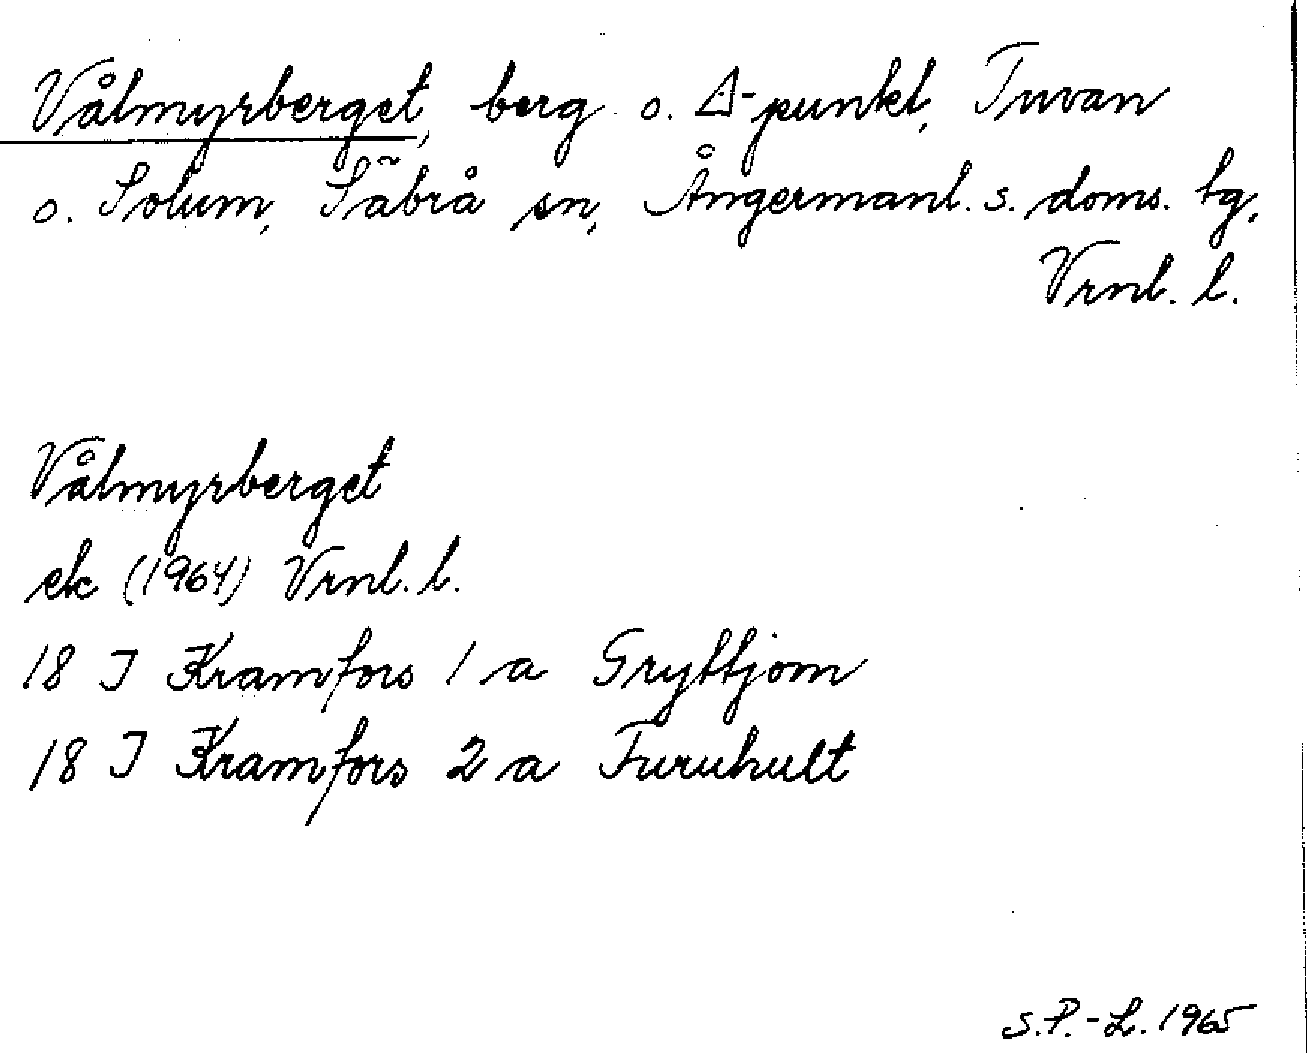 Vålmyrberget, berg o. Δ-punkt, Tuvan
o. Solum, Säbrå sn, Ångermanl. s. doms. tg,
Vrnl. l.
Vålmyrberget
ek (1964) Vrnl. l.
18 I Kramfors 1 a Gryttjom
18 I Kramfors 2 a Furuhult
S.P.-L. 1965